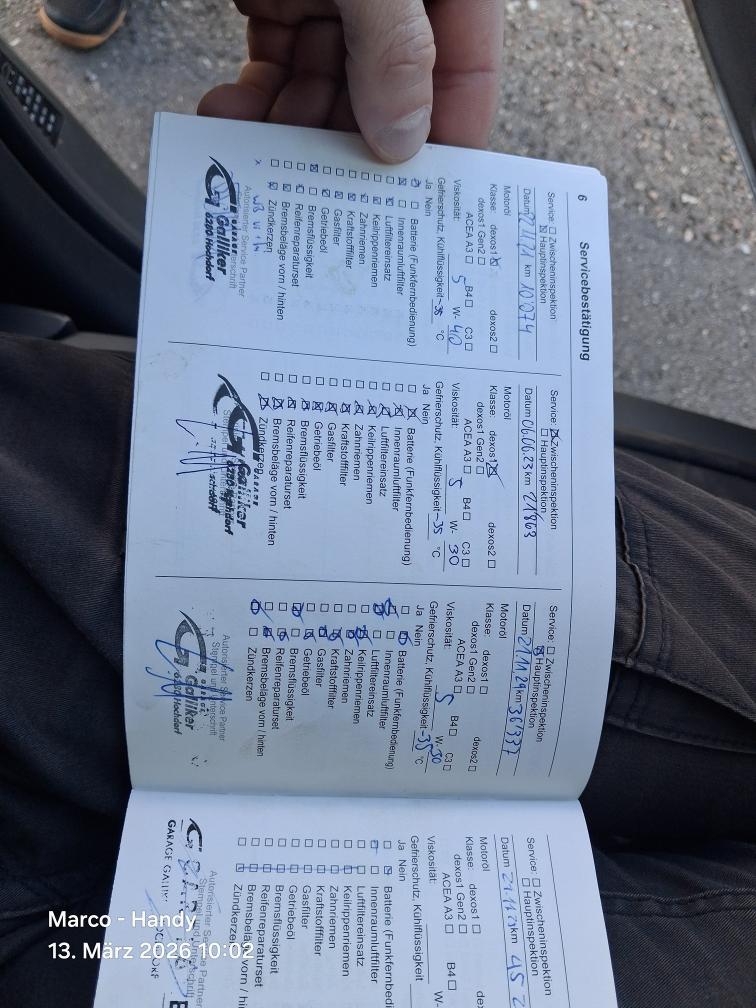 6 Servicebestätigung
Service: ☐ Zwischeninspektion
☒ Hauptinspektion
Datum km 10'074
Motoröl
Klasse: dexos1 ☒ dexos2 ☐
dexos1 Gen2 ☐
ACEA A3 ☐ B4 ☐ C3 ☐
Viskosität: 5 W- 40
Gefrierschutz, Kühlflüssigkeit -35 °C
Ja Nein
Batterie (Funkfernbedienung)
Innenraumluftfilter
Luftfiltereinsatz
Keilrippenriemen
Zahnriemen
Kraftstofffilter
Gasfilter
Getriebeöl
Bremsflüssigkeit
Reifenreparaturset
Bremsbeläge vorn / hinten
Zündkerzen
Autorisierter Service Partner
GARAGE
Galliker
6280 Hochdorf
Service: ☒ Zwischeninspektion
☐ Hauptinspektion
Datum 06.06.23 km 21863
Motoröl
Klasse: dexos1 ☒ dexos2 ☐
dexos1 Gen2 ☐
ACEA A3 ☐ B4 ☐ C3 ☐
Viskosität: 5 W- 30
Gefrierschutz, Kühlflüssigkeit -35 °C
Ja Nein
Batterie (Funkfernbedienung)
Innenraumluftfilter
Luftfiltereinsatz
Keilrippenriemen
Zahnriemen
Kraftstofffilter
Gasfilter
Getriebeöl
Bremsflüssigkeit
Reifenreparaturset
Bremsbeläge vorn / hinten
Zündkerzen
GARAGE
Galliker
6280 Hochdorf
Service: ☐ Zwischeninspektion
☒ Hauptinspektion
Datum 21.11.24 km 36'937
Motoröl
Klasse: dexos1 ☐ dexos2 ☐
dexos1 Gen2 ☐
ACEA A3 ☐ B4 ☐ C3 ☐
Viskosität: 5 W- 30
Gefrierschutz, Kühlflüssigkeit -35 °C
Ja Nein
Batterie (Funkfernbedienung)
Innenraumluftfilter
Luftfiltereinsatz
Keilrippenriemen
Zahnriemen
Kraftstofffilter
Gasfilter
Getriebeöl
Bremsflüssigkeit
Reifenreparaturset
Bremsbeläge vorn / hinten
Zündkerzen
Autorisierter Service Partner
Stempel und Unterschrift
GARAGE
Galliker
6280 Hochdorf
Service: ☐ Zwischeninspektion
☐ Hauptinspektion
Datum km 45
Motoröl
Klasse: dexos1 ☐
dexos1 Gen2 ☐
ACEA A3 ☐ B4 ☐
Viskosität: W-
Gefrierschutz, Kühlflüssigkeit
Ja Nein
Batterie (Funkfernbed
Innenraumluftfilter
Luftfiltereinsatz
Keilrippenriemen
Zahnriemen
Kraftstofffilter
Gasfilter
Getriebeöl
Bremsflüssigkeit
Reifenreparaturset
Bremsbeläge vorn / hi
Zündkerzen
Autorisierter Service Partne
GARAGE
Marco - Handy
13. März 2026 10:02